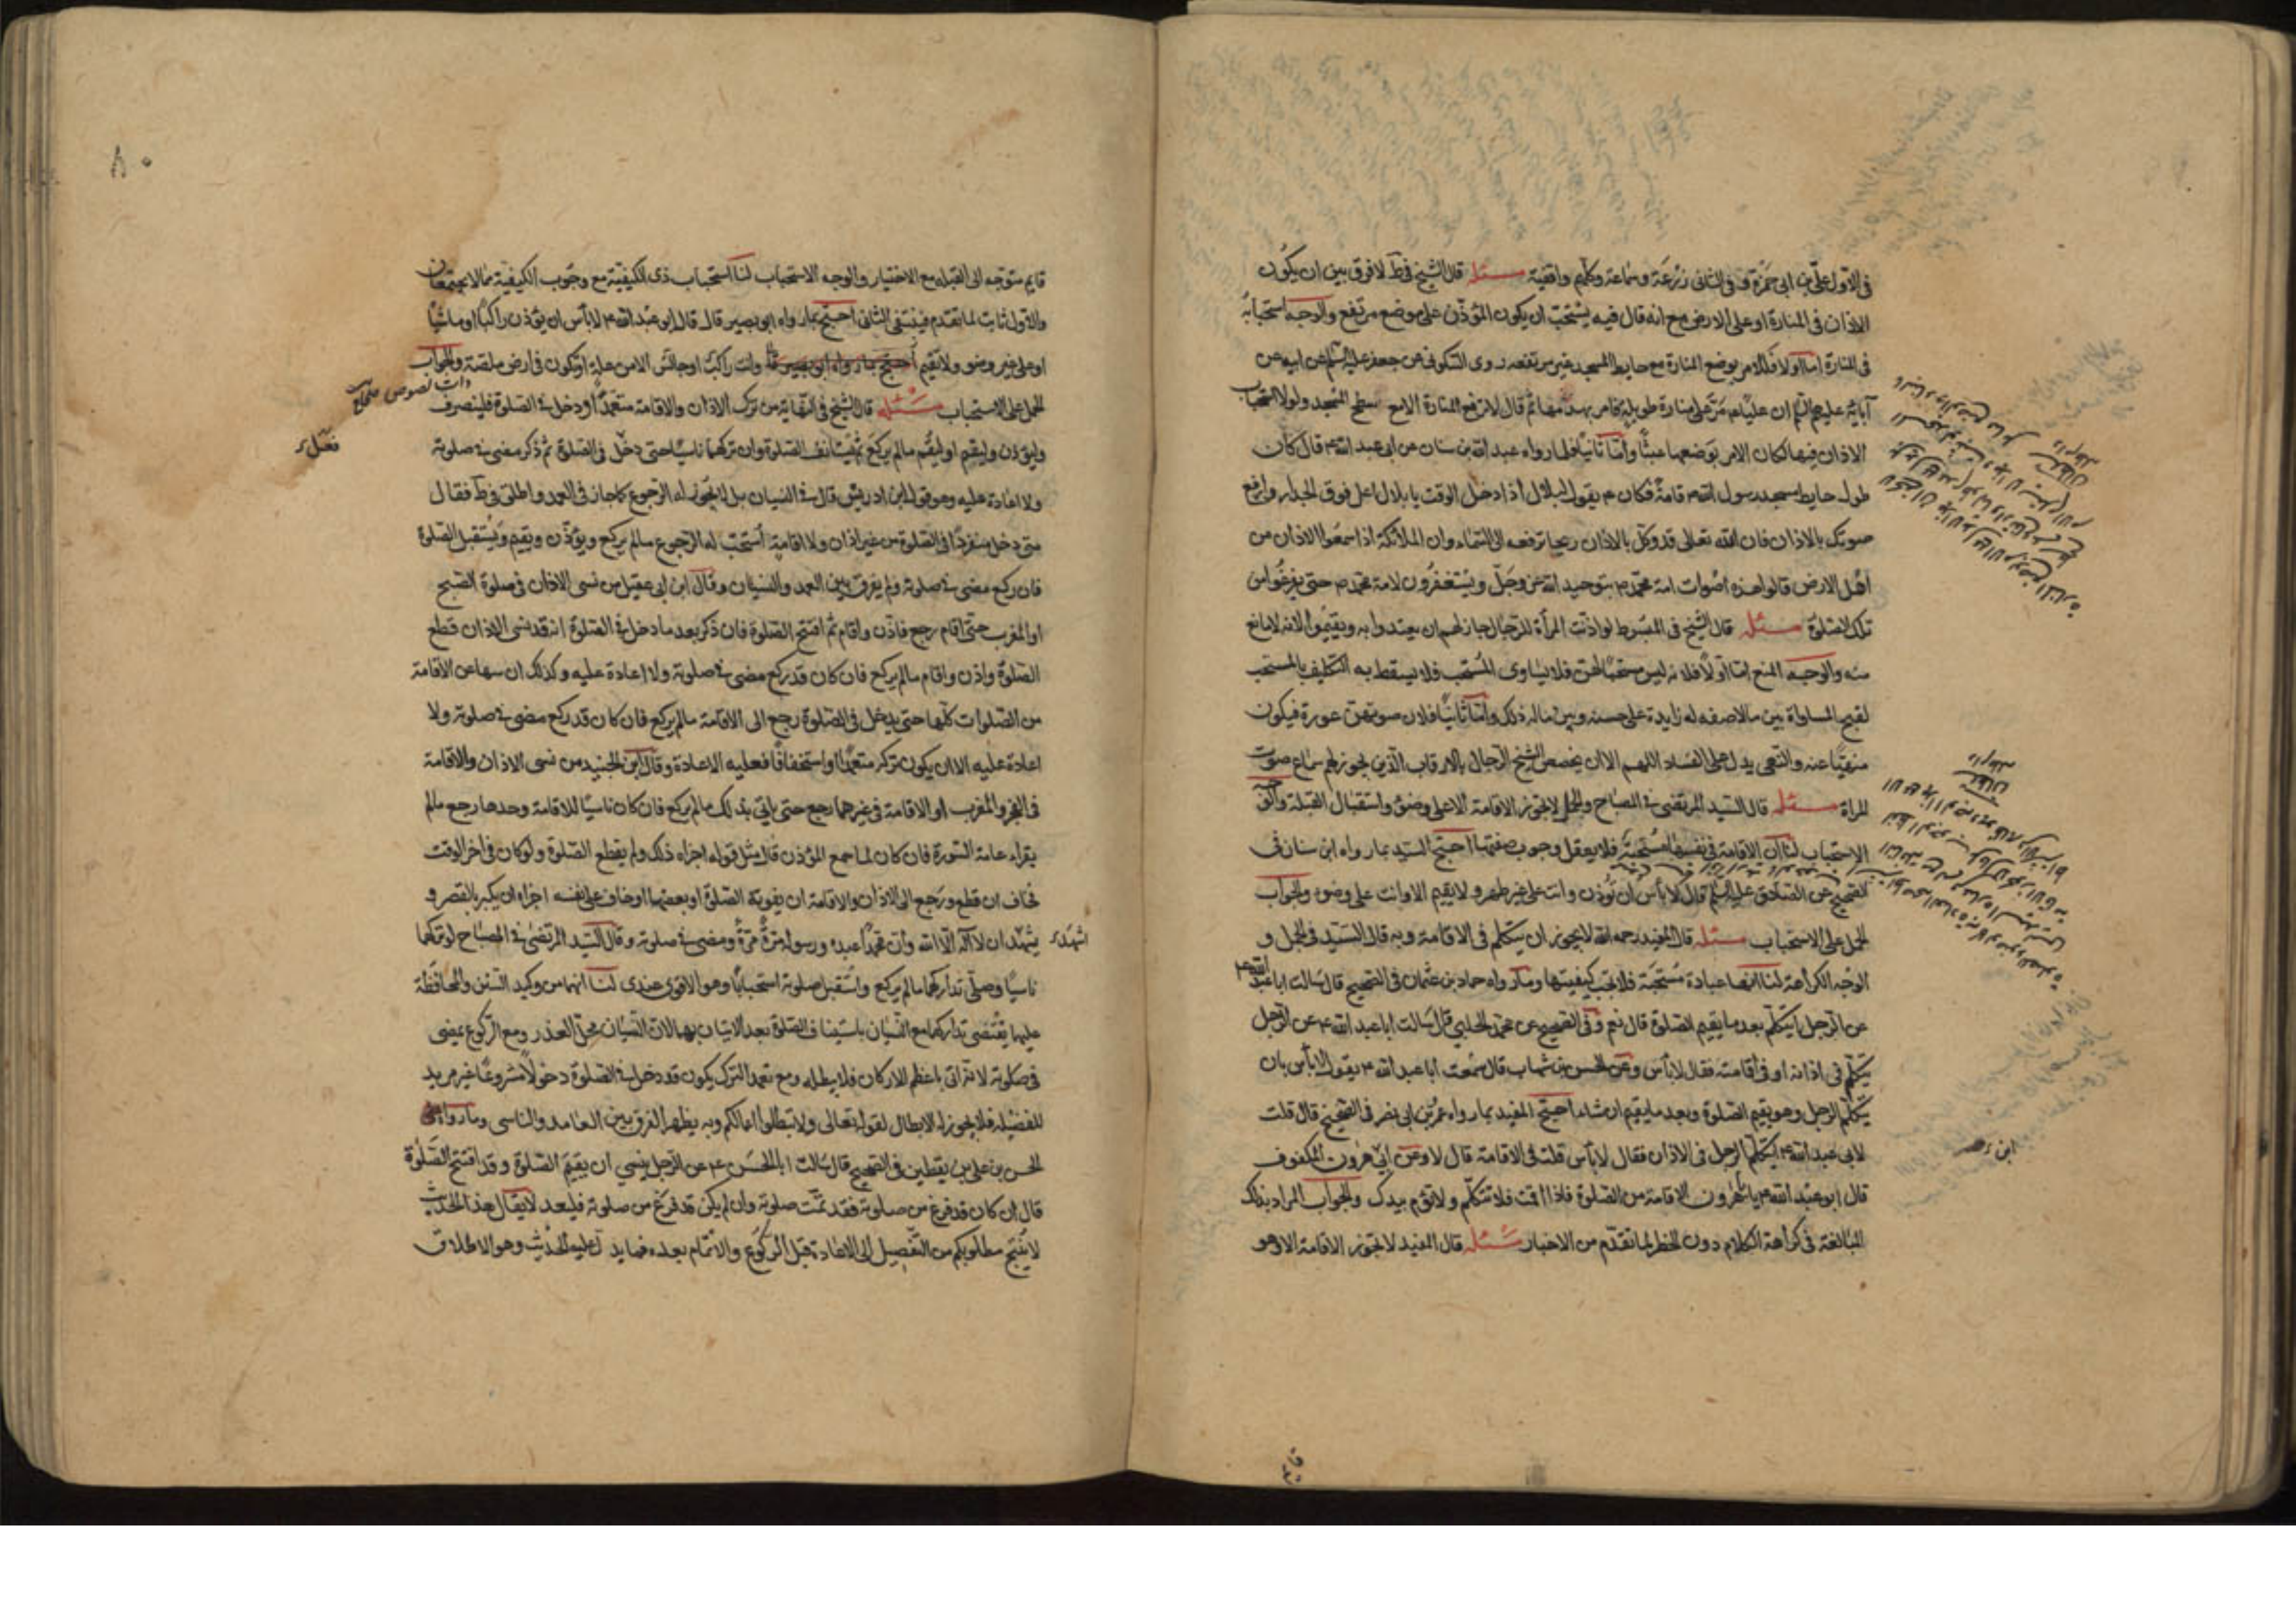 في الاول علي بن ابي حمزة و في الثاني زرعة و سماعة وكلهم واقفية مسئلة قال الشيخ في ط لا فرق بين ان يكون
الاذان في المنارة او على الارض مع انه قال فيه يستحب ان يكون المؤذن على موضع مرتفع والوجه استحبابه
في المنارة اما اولا فللامر بوضع المنارة مع حايط المسجد غير مرتفعه روى السكوني عن جعفر عليه السلام عن ابيه عن
آبائه عليهم السلام ان عليا ع مر على منارة طويلة فامر بهدمها ثم قال لا ترفع المنارة الا مع سطح المسجد ولولا استحباب
الاذان فيها لكان الامر بوضعها عبثا واما ثانيا فلما رواه عبد الله بن سنان عن ابي عبد الله ع قال كان
طول حايط مسجد رسول الله ص قامة فكان ع يقول لبلال اذا دخل الوقت يا بلال اعل فوق الجدار وارفع
صوتك بالاذان فان الله تعالى قد وكل بالاذان ريحا ترفعه الى السماء وان الملائكة اذا سمعوا الاذان من
اهل الارض قالوا هذه اصوات امة محمد ص بتوحيد الله عز وجل ويستغفرون لامة محمد ص حتى يفرغوا من
تلك الصلوة مسئلة قال الشيخ في المبسوط لو اذنت المرأة للرجال جاز لهم ان يعتدوا به ويقيموا لانه لا مانع
منه والوجه المنع اما اولا فلانه ليس مستحبا لهن فلا يساوى المستحب فلا يسقط به التكليف بالمستحب
لقبح المساواة بين ما لا صفه له زايدة على حسنه وبين ماله ذلك واما ثانيا فلان صوتهن عورة فيكون
منهيا عنه والنهى يدل على الفساد اللهم الا ان يخصص الشيخ الرجال بالاقارب الذين يجوز لهم سماع صوت
المراة مسئلة قال السيد المرتضى في المصباح والجمل لا يجوز الاقامة الا على وضؤ واستقبال القبلة والوجه
الاستحباب لنا ان الاقامة في نفسها مستحبة فلا يعقل وجوب صفتها احتج السيد بما رواه ابن سنان في
الصحيح عن الصادق عليه السلم قال لا بأس ان تؤذن وانت على غير طهر ولا تقيم الا وانت على وضوء والجواب
الحمل على الاستحباب مسئلة قال المفيد رحمه الله لا يجوز ان يتكلم في الاقامة وبه قال السيد في الجمل و
الوجه الكراهة لنا انها عبادة مستحبة فلا تجب كيفيتها وما رواه حماد بن عثمان في الصحيح قال سالت ابا عبد الله ع
عن الرجل ايتكلم بعد ما يقيم الصلوة قال نعم وفي الصحيح عن محمد الحلبي قال سالت ابا عبد الله ع عن الرجل
يتكلم في اذانه او في اقامته فقال لا بأس وعن الحسن بن شهاب قال سمعت ابا عبد الله ع يقول لا بأس بان
يتكلم الرجل وهو يقيم الصلوة وبعد ما يقيم ان شاء احتج المفيد بما رواه عمر بن ابي نصر في الصحيح قال قلت
لابي عبد الله ع ايتكلم الرجل في الاذان فقال لا بأس قلت في الاقامة قال لا وعن ابي هرون المكفوف
قال ابو عبد الله ع يا با هرون الاقامة من الصلوة فاذا اقمت فلا تتكلم ولا تؤم بيدك والجواب المراد بذلك
المبالغة في كراهة الكلام دون الحظر لما تقدم من الاخبار مسئلة قال المفيد لا تجوز الاقامة الا وهو
قايم متوجه الى القبله مع الاختيار والوجه الاستحباب لنا استحباب ذى الكيفية مع وجوب الكيفية مما لا يجتمعان
والاول ثابت لما تقدم فينتفى الثانى احتج بما رواه ابو بصير قال قال ابو عبد الله ع لا بأس ان يؤذن راكبا او ماشيا
او على غير وضو ولا تقيم وانت راكب او جالس الا من علة او تكون في ارض ملصة والجواب
الحمل على الاستحباب مسئلة قال الشيخ في النهاية من ترك الاذان والاقامة متعمدا ودخل في الصلوة فلينصرف
وليؤذن وليقم او ليقم ما لم يركع ثم يستانف الصلوة وان تركهما ناسيا حتى دخل في الصلوة ثم ذكر مضى في صلوته
ولا اعادة عليه وهو قول ابن ادريس قال في النسيان بل لا يجوز له الرجوع كما جاز في العمد واطلق في ط فقال
متى دخل منفردا في الصلوة من غير اذان ولا اقامة استحب له الرجوع ما لم يركع ويؤذن ويقيم ويستقبل الصلوة
فان ركع مضى في صلوته ولم يفرق بين العمد والنسيان وقال ابن ابي عقيل من نسى الاذان في صلوة الصبح
او المغرب حتى اقام رجع فاذن واقام ثم افتتح الصلوة فان ذكر بعد ما دخل في الصلوة انه قد نسى الاذان قطع
الصلوة واذن واقام ما لم يركع فان كان قد ركع مضى في صلوته ولا اعادة عليه وكذلك ان سها عن الاقامة
من الصلوات كلها حتى يدخل في الصلوة رجع الى الاقامة ما لم يركع فان كان قد ركع مضى في صلوته ولا
اعادة عليه الا ان يكون تركه متعمدا او استخفافا فعليه الاعادة وقال ابن الجنيد من نسى الاذان والاقامة
في الفجر والمغرب او الاقامة في غيرهما رجع حتى ياتي بذلك ما لم يركع فان كان ناسيا للاقامة وحدها رجع ما لم
يقراء عامة السورة فان كان لما سمع المؤذن قال مثل قوله اجزاه ذلك ولم يقطع الصلوة ولو كان في اخر الوقت
فخاف ان قطع ورجع الى الاذان والاقامة ان يفوته الصلوة او بعضها او خاف على نفسه اجزاه ان يكبر بالقصر و
يشهد ان لا اله الا الله وان محمدا عبده ورسوله مرة مرة ومضى في صلوته وقال السيد المرتضى في المصباح لو تركهما
ناسيا وصلى تداركهما ما لم يركع واستقبل صلوته استحبابا وهو الاقوى عندى لنا انهما من وكيد السنن والمحافظة
عليها يقتضى تداركهما مع النسيان باستيناف الصلوة بعد الاتيان بهما لان النسيان محل العذر ومع الركوع يمضى
في صلوته لانه اتى باعظم الاركان فلا يبطله ومع تعمد الترك يكون قد دخل في الصلوة دخولا مشروعا غير مريد
للفضيلة فلا يجوز له الابطال لقوله تعالى ولا تبطلوا اعمالكم وبه يظهر الفرق بين العامد والناسى وما رواه
الحسن بن على بن يقطين في الصحيح قال سالت ابا الحسن ع عن الرجل ينسى ان يقيم الصلوة وقد افتتح الصلوة
قال ان كان قد فرغ من صلوته فقد تمت صلوته وان لم يكن قد فرغ من صلوته فليعد لا يقال هذا الحديث
لا ينتج مطلوبكم من التفصيل الى الاعادة قبل الركوع والاتمام بعده فما يدل عليه الحديث وهو الاطلاق